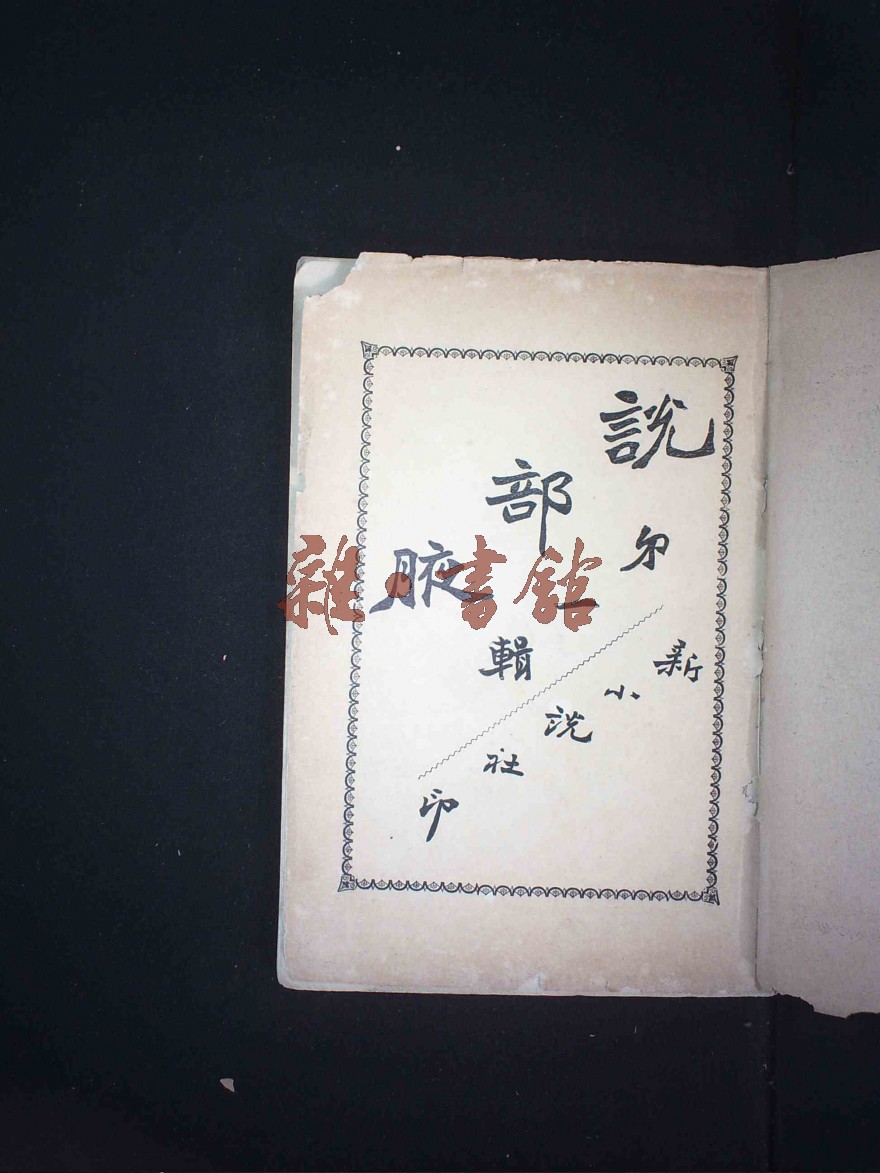 說部腋
弟一輯
新小說社印
雜·書館